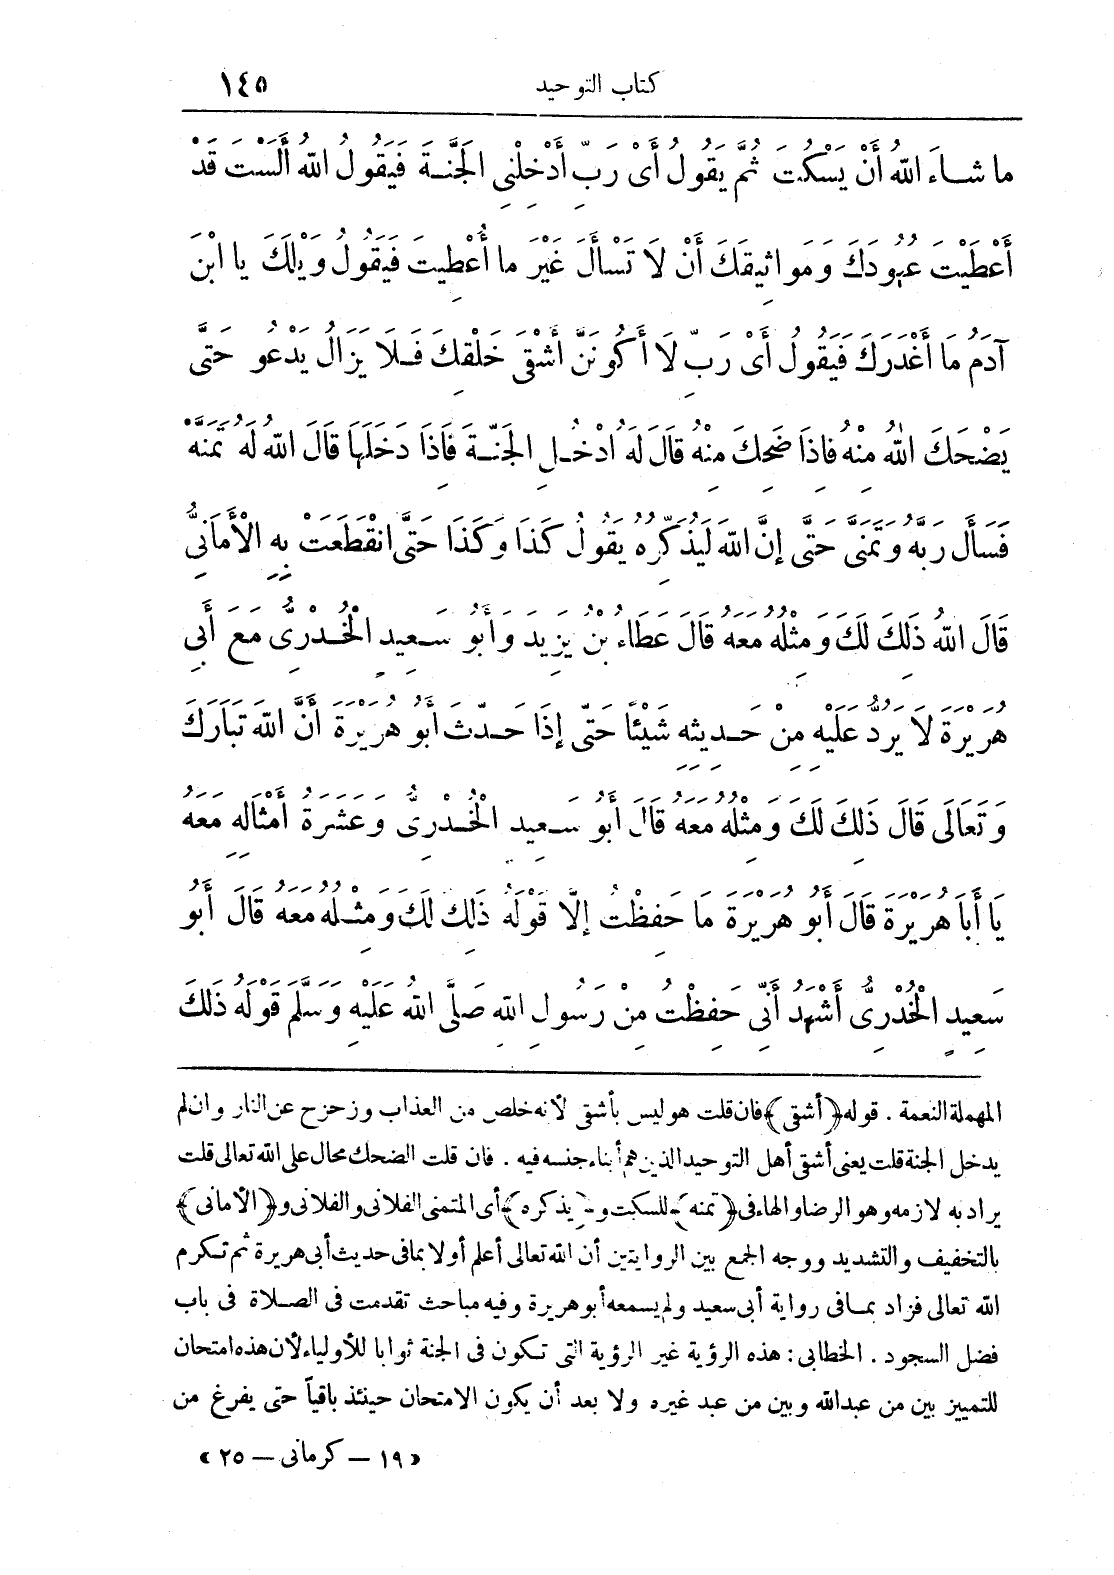 كتاب التوحيد ١٤٥
ما شَاءَ اللهُ أَنْ يَسْكُتَ ثُمَّ يَقُولُ أَىْ رَبِّ أَدْخِلْنِى الْجَنَّةَ فَيَقُولُ اللهُ أَلَسْتَ قَدْ
أَعْطَيْتَ عُهُودَكَ وَمَوَاثِيقَكَ أَنْ لَا تَسْأَلَ غَيْرَ ما أُعْطِيتَ فَيَقُولُ وَيْلَكَ يا ابْنَ
آدَمُ مَا أَغْدَرَكَ فَيَقُولُ أَىْ رَبِّ لَا أَكُونَنَّ أَشْقَى خَلْقِكَ فَلَا يَزَالُ يَدْعُو حَتَّى
يَضْحَكَ اللهُ مِنْهُ فَاِذَا ضَحِكَ مِنْهُ قَالَ لَهُ ادْخُلِ الْجَنَّةَ فَاِذَا دَخَلَهَا قَالَ اللهُ لَهُ تَمَنَّهْ
فَسَأَلَ رَبَّهُ وَتَمَنَّى حَتَّى إِنَّ اللهَ لَيُذَكِّرُهُ يَقُولُ كَذَا وَكَذَا حَتَّى انْقَطَعَتْ بِهِ الْأَمَانِىُّ
قَالَ اللهُ ذَلِكَ لَكَ وَمِثْلُهُ مَعَهُ قَالَ عَطَاءُ بْنُ يَزِيدَ وَأَبُو سَعِيدٍ الْخُدْرِىُّ مَعَ أَبِى
هُرَيْرَةَ لَا يَرُدُّ عَلَيْهِ مِنْ حَدِيثِهِ شَيْئًا حَتَّى إِذَا حَدَّثَ أَبُو هُرَيْرَةَ أَنَّ اللهَ تَبَارَكَ
وَتَعَالَى قَالَ ذَلِكَ لَكَ وَمِثْلُهُ مَعَهُ قَالَ أَبُو سَعِيدٍ الْخُدْرِىُّ وَعَشَرَةُ أَمْثَالِهِ مَعَهُ
يَا أَبَا هُرَيْرَةَ قَالَ أَبُو هُرَيْرَةَ مَا حَفِظْتُ إِلَّا قَوْلَهُ ذَلِكَ لَكَ وَمِثْلُهُ مَعَهُ قَالَ أَبُو
سَعِيدٍ الْخُدْرِىُّ أَشْهَدُ أَنِّى حَفِظْتُ مِنْ رَسُولِ اللهِ صَلَّى اللهُ عَلَيْهِ وَسَلَّمَ قَوْلَهُ ذَلِكَ
المهملة النعمة . قوله ﴿أشقى﴾ فان قلت هو ليس بأشقى لأنه خلص من العذاب وزحزح عن النار وان لم
يدخل الجنة قلت يعنى أشقى أهل التوحيد الذين هم أبناء جنسه فيه . فان قلت الضحك محال على الله تعالى قلت
يراد به لازمه وهو الرضا والهاء فى ﴿تمنه﴾ للسكت و﴿يذكره﴾ أى المتمنى الفلانى والفلانى و﴿الأمانى﴾
بالتخفيف والتشديد ووجه الجمع بين الروايتين أن الله تعالى أعلم أولا بما فى حديث أبى هريرة ثم تكرم
الله تعالى فزاد بما فى رواية أبى سعيد ولم يسمعه أبو هريرة وفيه مباحث تقدمت فى الصلاة فى باب
فضل السجود . الخطابى : هذه الرؤية غير الرؤية التى تكون فى الجنة ثوابا للأولياء لأن هذه امتحان
للتمييز بين من عبد الله وبين من عبد غيره ولا بعد أن يكون الامتحان حينئذ باقياً حتى يفرغ من
« ١٩ – كرمانى – ٢٥ »